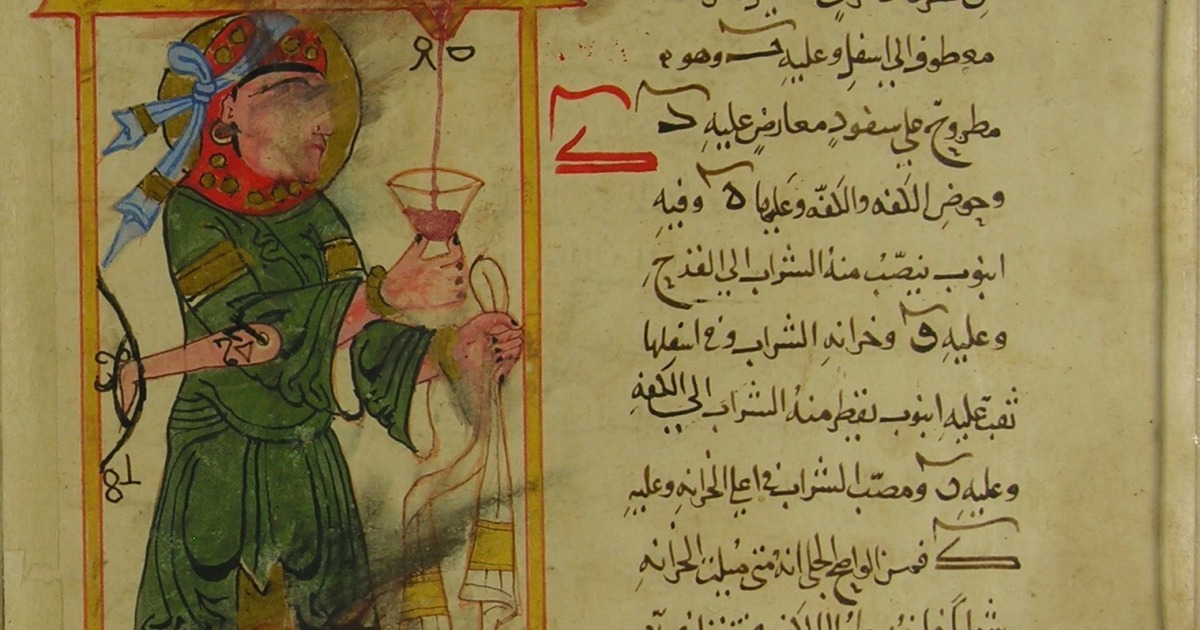 معطوف الى اسفل وعليه حـ وهو م
مطروح على سفود معارض عليه د
وحوض الكفه والكفّه وعليها ه وفيه
انبوب ينصبّ منه الشراب الى القدح
وعليه و وخزانه الشراب وفى اسفلها
ثقب عليه انبوب يقطر منه الشراب الى الكفه
وعليه ومصبّ الشراب فى اعلى الخزانه وعليه
فمن الواضح الجلى انه متى ملئت الخزانه